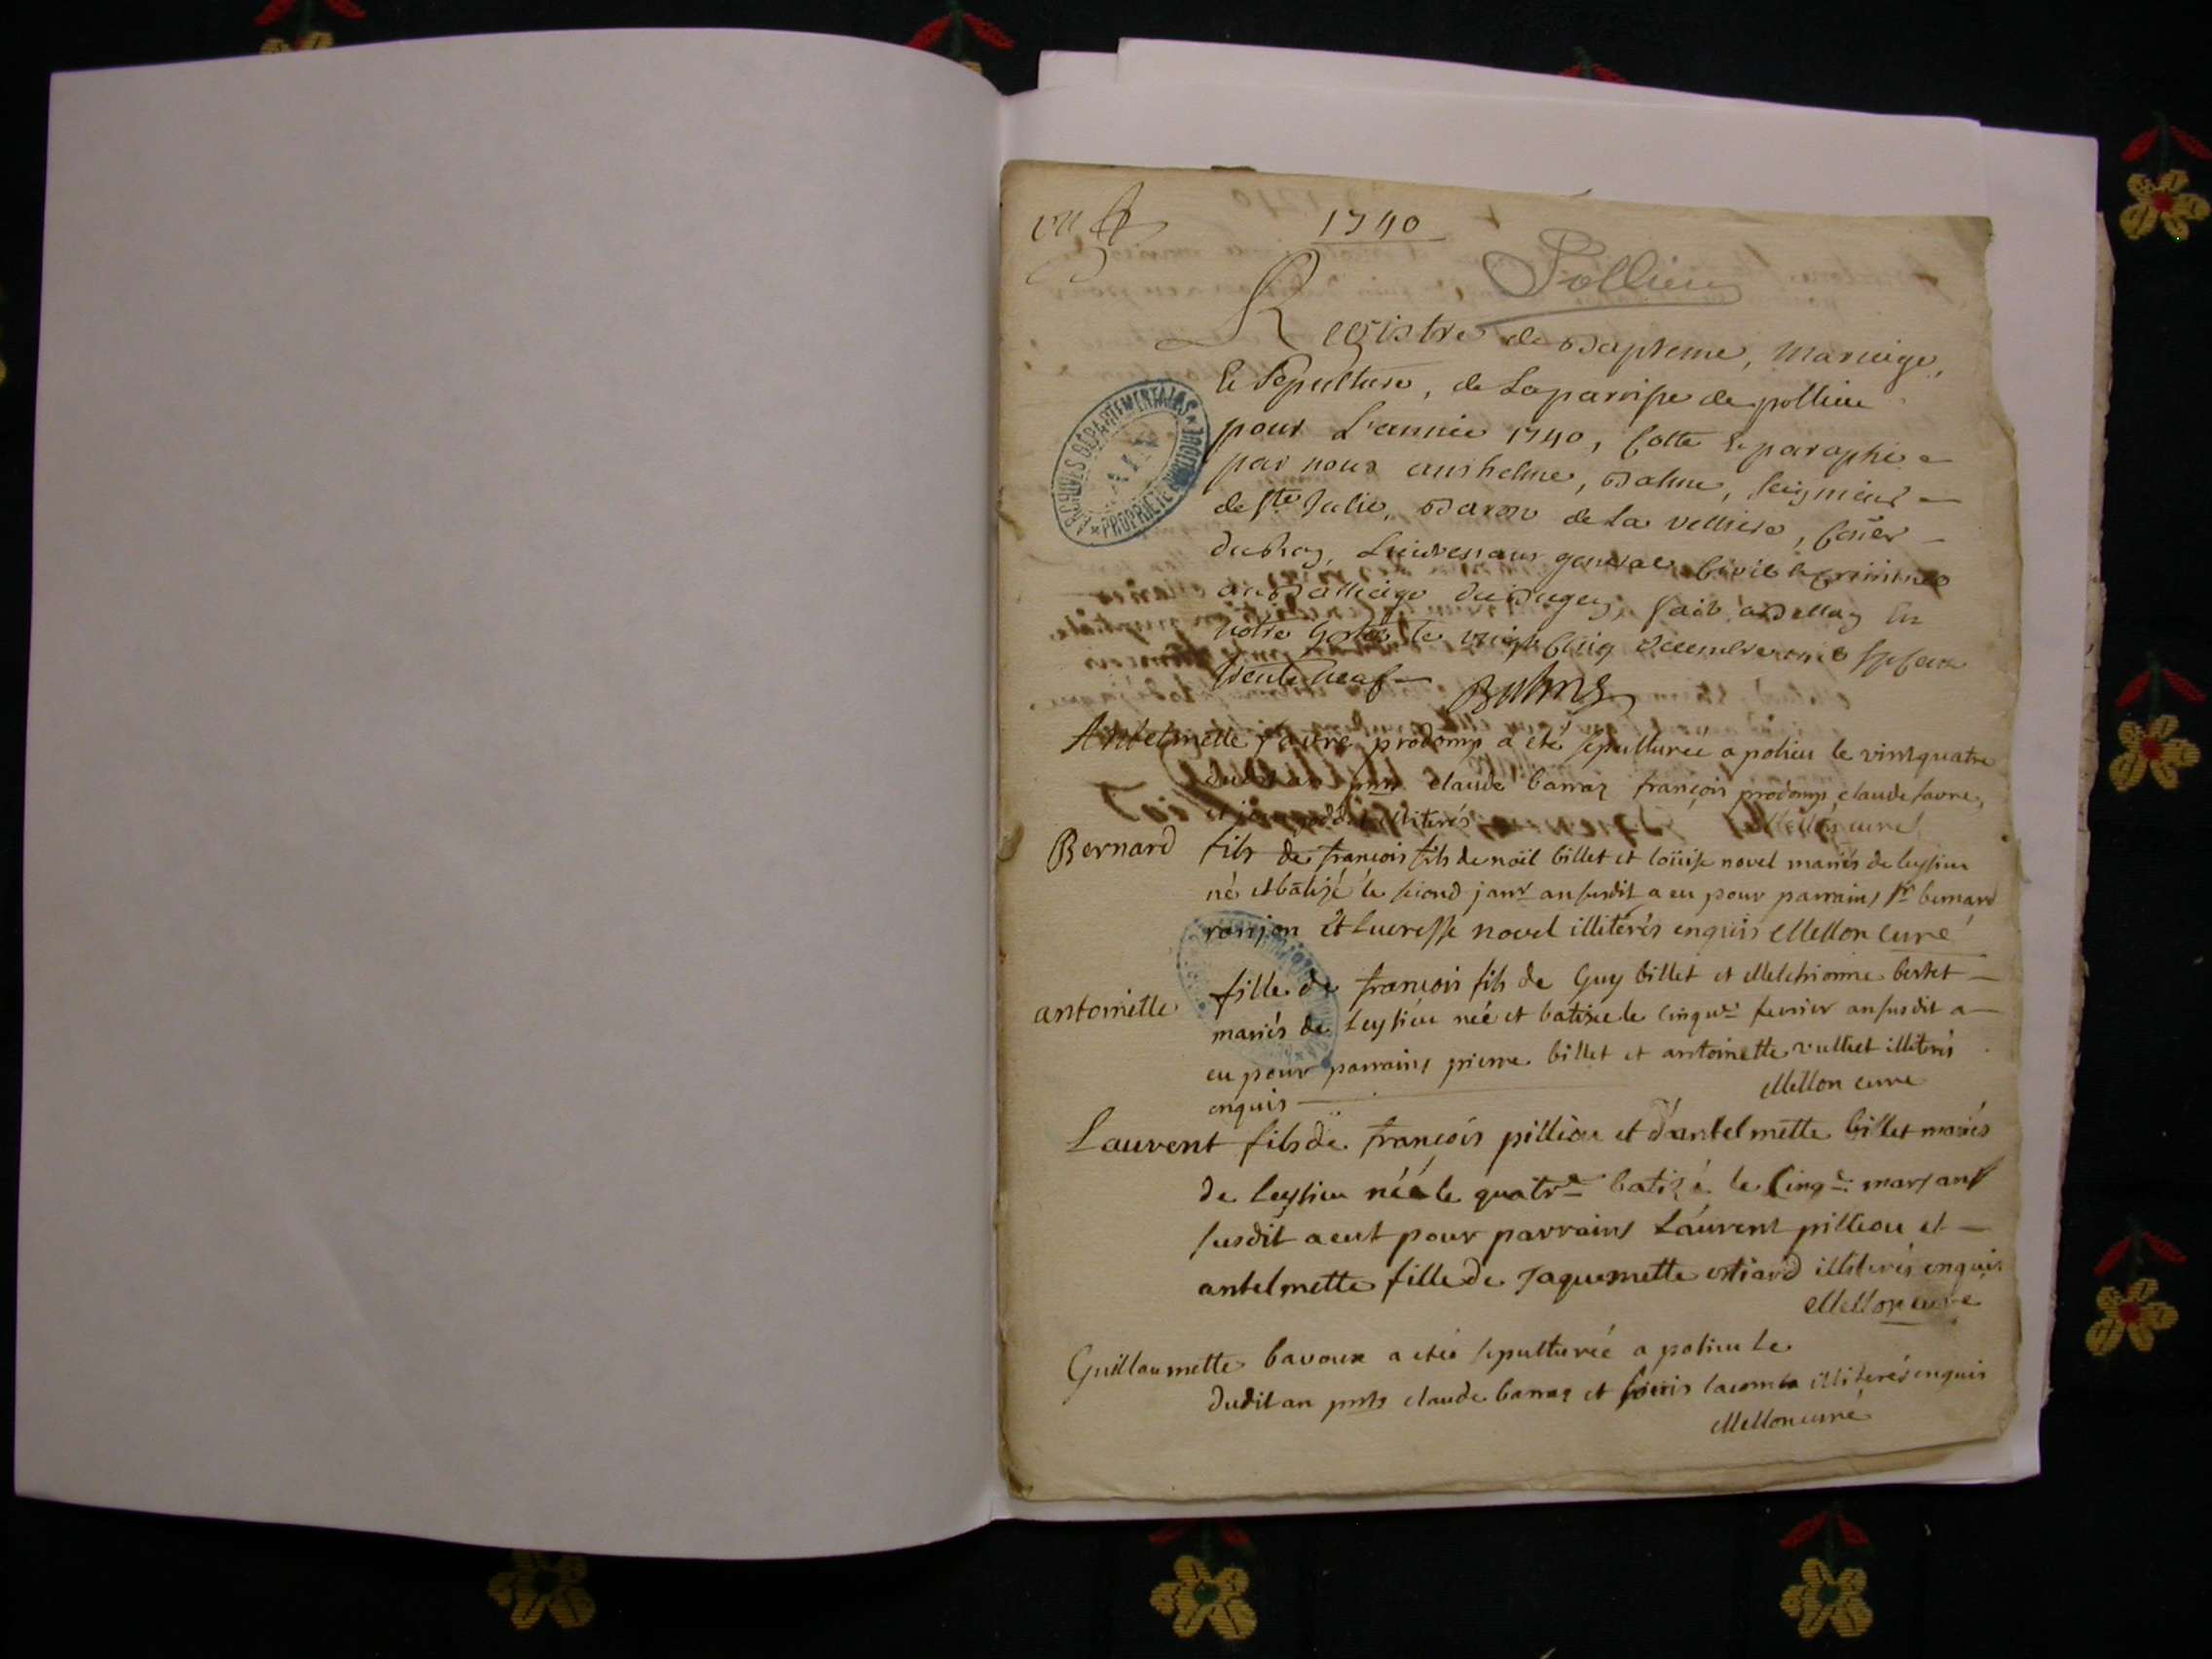 1740
Pollieu
Registre de Bapteme, mariage,
Et Sepulture, de La paroisse de pollieu
pour L'année 1740, Cotté & paraphé
par nous anthelme, Balme, seigneur
de Ste Julie, Baron de La velliere, Coner
du Roy, Lieutenant general Civil & criminel
au Balliage du Bugey, fait a Bellay En
notre hostel le vingt Cinq Decembre mil sept Cent
trente neuf
Balme
ARCHIVES DÉPARTEMENTALES
AIN
PROPRIÉTÉ PUBLIQUE
Antelmette favre prodomp a eté sepulturée a polieu le vintquatre
claude barraz françois prodomp, claude favre,
illiterés Mellon curé
Bernard fils de françois fils de noël billet et loüise novel mariés de leysieu
né et batizé le second janr an susdit a eu pour parrains sr bernard
ronjon et lucresse novel illiterés enquis Mellon curé
antoinette fille de françois fils de Guy billet et Melchionne bertet
mariés de Leysieu née et batizée le cinqe fevrier an susdit a
eu pour parrains pierre billet et antoinette vulliet illiterés
enquis Mellon curé
Laurent fils de françois pilliou et d'antelmette billet mariés
de leysieu née le quatre batizé le Cinqe mars an
susdit a eut pour parrains Laurent pilliou et
antelmette fille de Jaquemette estiard illiterés enquis
Mellon curé
Guillaumette bavoux a etée sepulturée a polieu le
dudit an pnts claude barraz et loüis lacombe illiterés enquis
Mellon curé